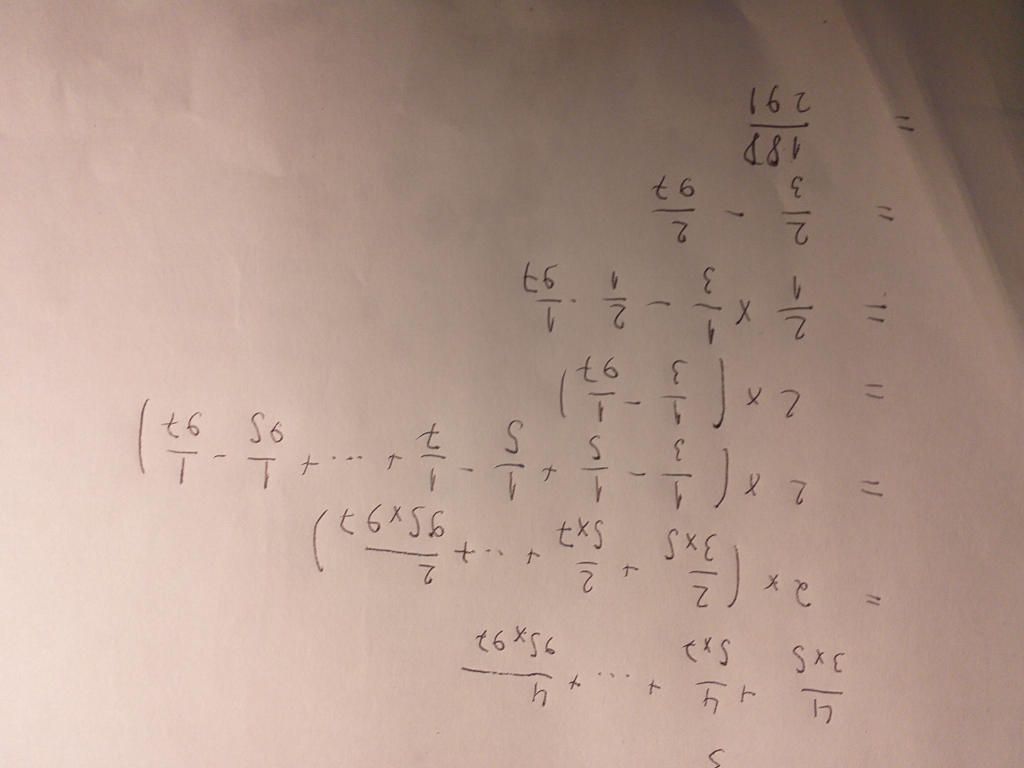 4/3×5 + 4/5×7 + ... + 4/95×97
= 2 × (2/3×5 + 2/5×7 + ... + 2/95×97)
= 2 × (1/3 - 1/5 + 1/5 - 1/7 + ... + 1/95 - 1/97)
= 2 × (1/3 - 1/97)
= 2/1 × 1/3 - 2/1 . 1/97
= 2/3 - 2/97
= 188/291